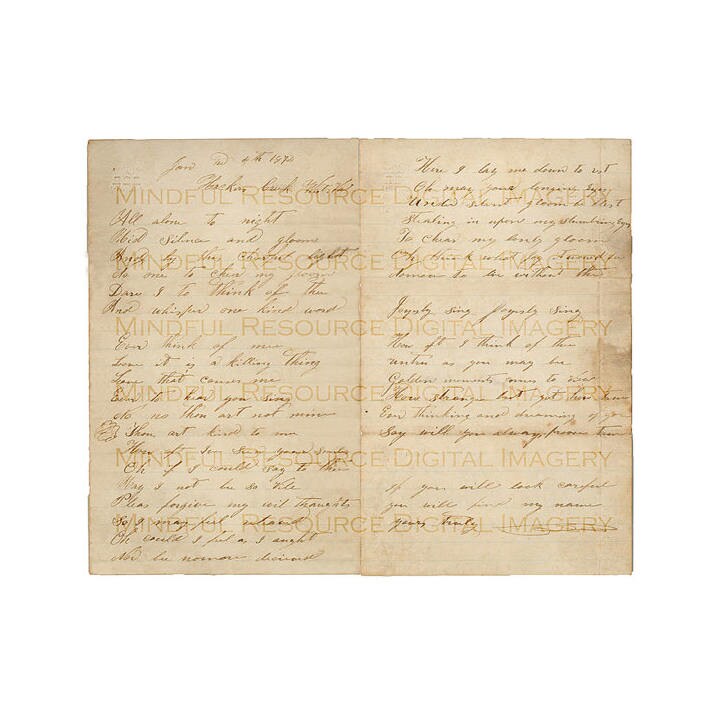 Jan 4th 1870
Creek
All alone to night
Mid Silence and gloom
And by the light
No one to chear my room
Dare I to think of thee
And whisper one kind word
Ever think of me
Love it is a killing thing
Love that causes me
Ever to hear you sing
No no thou art not mine
Thou art kind to me
How
Oh if I could say to thee
May I not be so vile
Pleas forgive my thoughts
So I may feel
Oh could I feel as I aught
Nor be nomore decieved
Here I lay me down to rest
Oh may your Eyes
Stealing in upon my Slumbring Eyes
To chear my lonly gloom
Oh think what
to live without thee
Joyusly Sing Joyusly Sing
How oft I think of thee
untru as you may be
Golden moments
Ever thinking and dreaming of you
Say will you always prove true
if you will look careful
you will find my name
yours Truly
MINDFUL RESOURCE DIGITAL IMAGERY
MINDFUL RESOURCE DIGITAL IMAGERY
MINDFUL RESOURCE DIGITAL IMAGERY
MINDFUL RESOURCE DIGITAL IMAGERY
MINDFUL RESOURCE DIGITAL IMAGERY
MINDFUL RESOURCE DIGITAL IMAGERY